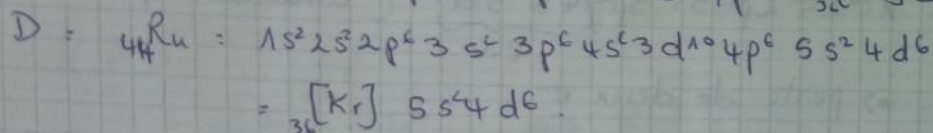 D = ₄₄Ru = 1s² 2s² 2p⁶ 3s² 3p⁶ 4s² 3d¹⁰ 4p⁶ 5s² 4d⁶
= ₃₆[Kr] 5s² 4d⁶.